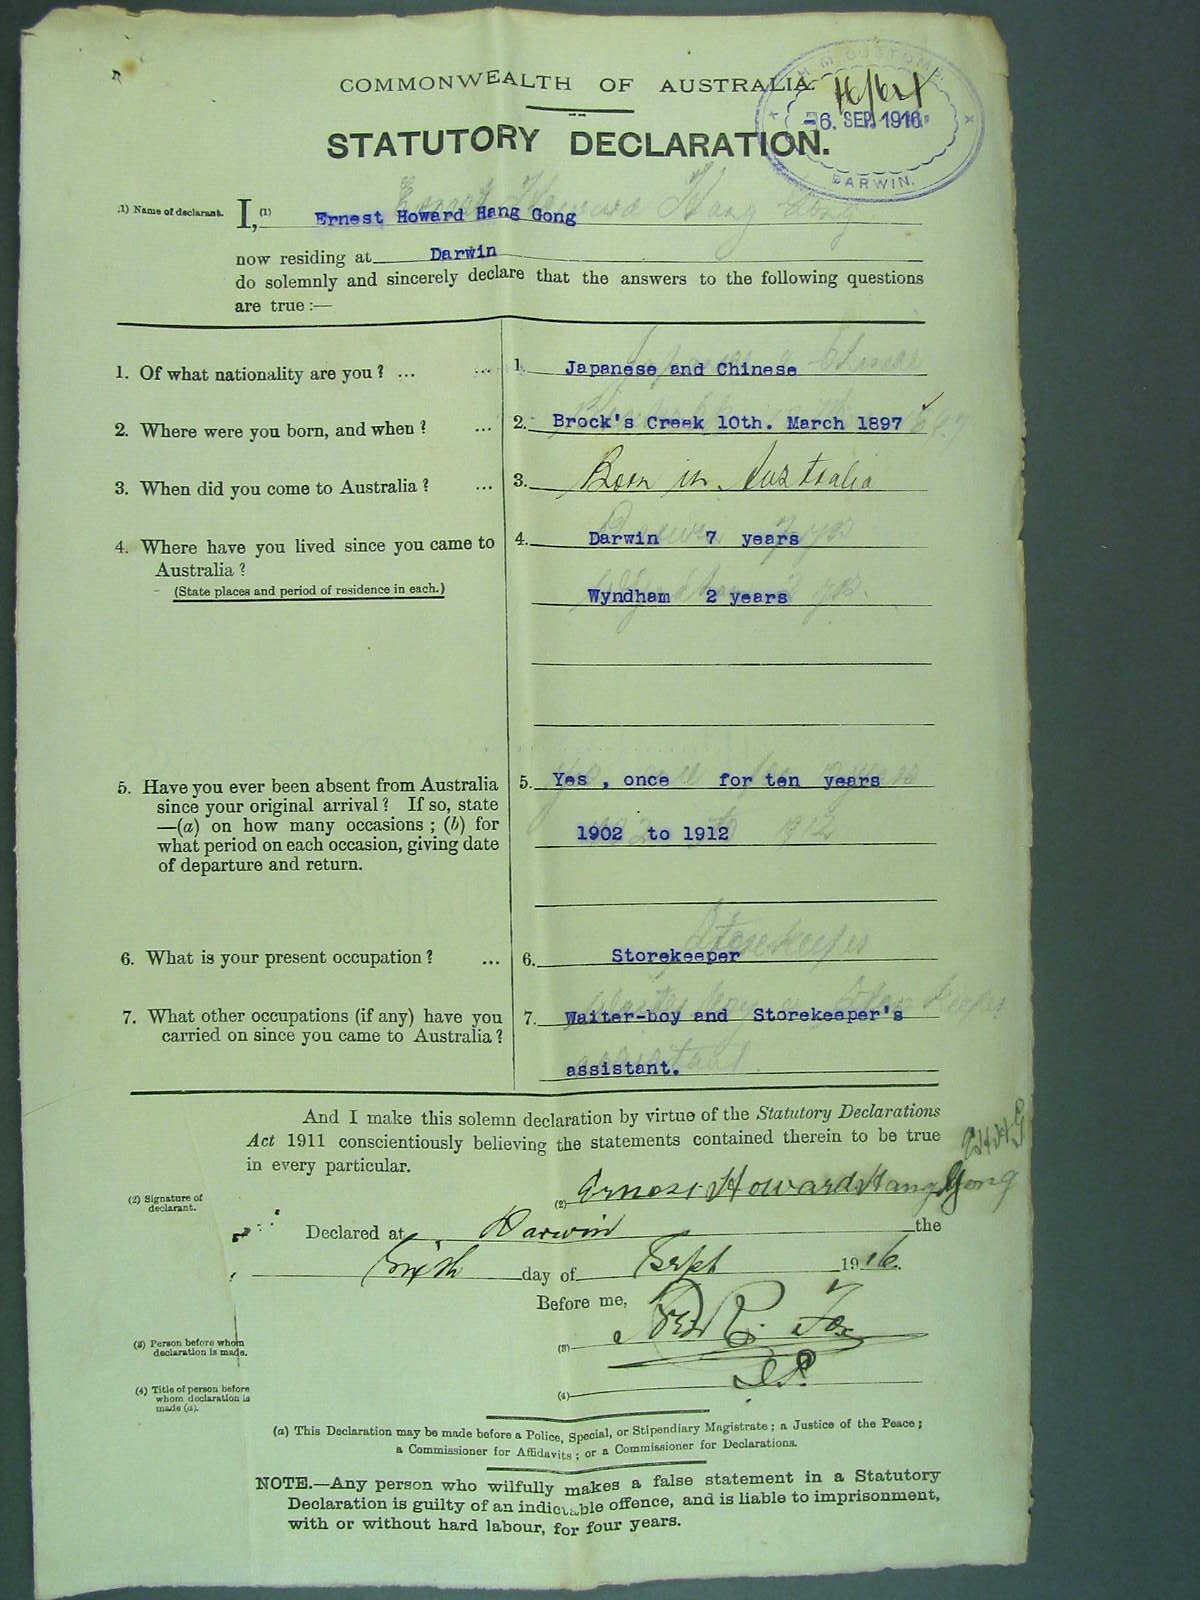 H.M. CUSTOMS
16/621
-6. SEP. 1916
DARWIN.
COMMONWEALTH OF AUSTRALIA.
STATUTORY DECLARATION.
(1) Name of declarant. I, (1) Ernest Howard Hang Gong
now residing at Darwin
do solemnly and sincerely declare that the answers to the following questions
are true :—
1. Of what nationality are you ? ... ... 1. Japanese and Chinese
2. Where were you born, and when ? ... 2. Brock's Creek 10th. March 1897
3. When did you come to Australia ? ... 3. Born in Australia
4. Where have you lived since you came to 4. Darwin 7 years
Australia ?
(State places and period of residence in each.) Wyndham 2 years
5. Have you ever been absent from Australia 5. Yes , once for ten years
since your original arrival ? If so, state
—(a) on how many occasions ; (b) for 1902 to 1912
what period on each occasion, giving date
of departure and return.
6. What is your present occupation ? ... 6. Storekeeper
7. What other occupations (if any) have you 7. Waiter-boy and Storekeeper's
carried on since you came to Australia ?
assistant.
And I make this solemn declaration by virtue of the Statutory Declarations
Act 1911 conscientiously believing the statements contained therein to be true
in every particular.
EHHG
(2) Signature of
declarant.
(2) Ernest Howard Hang Gong
Declared at Darwin the
Sixth day of Sept 1916.
Before me,
(3) Person before whom
declaration is made.
(3)
(4) Title of person before
whom declaration is
made (a).
(4) J.P.
(a) This Declaration may be made before a Police, Special, or Stipendiary Magistrate ; a Justice of the Peace ;
a Commissioner for Affidavits ; or a Commissioner for Declarations.
NOTE.—Any person who wilfully makes a false statement in a Statutory
Declaration is guilty of an indictable offence, and is liable to imprisonment,
with or without hard labour, for four years.